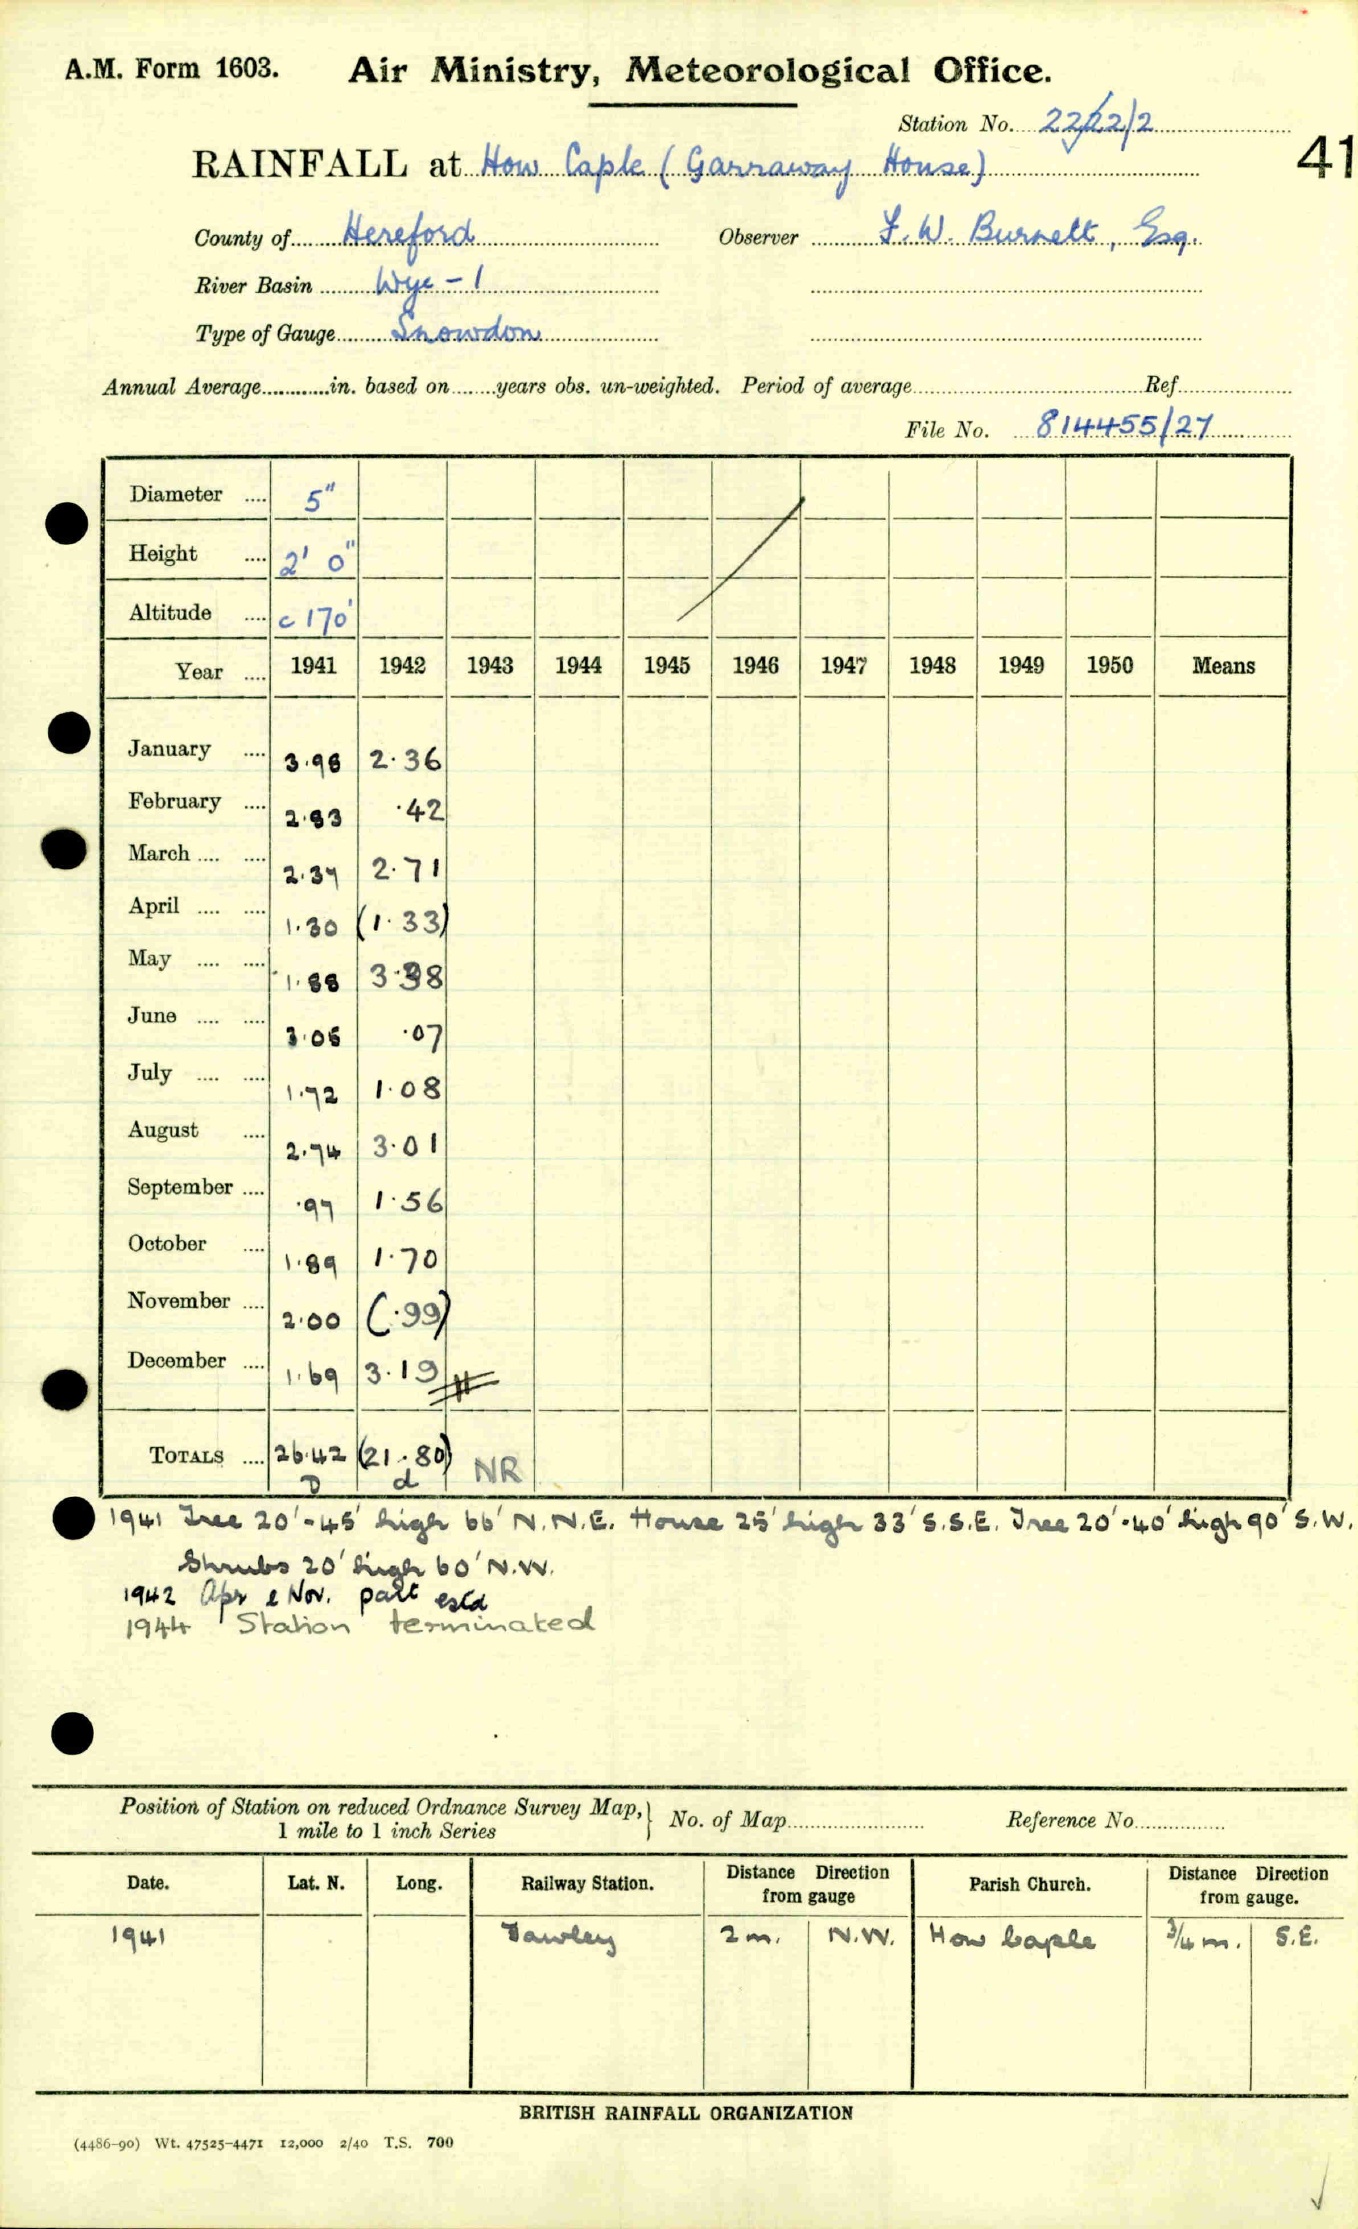 A.M. Form 1603. Air Ministry, Meteorological Office.
Station No. 22/22/2
RAINFALL at How Caple (Garraway House) 41
County of Hereford Observer F. W. Burnett, Esq.
River Basin Wye - 1
Type of Gauge Snowdon
Annual Average............in. based on.......years obs. un-weighted. Period of average............ Ref............
File No. 814455/27
Diameter .... 5"
Height .... 2' 0"
Altitude .... c 170'
Year .... 1941 1942 1943 1944 1945 1946 1947 1948 1949 1950 Means
January .... 3.98 2.36
February .... 2.83 .42
March .... .... 2.37 2.71
April .... .... 1.30 (1.33)
May .... .... 1.88 3.38
June .... .... 3.05 .07
July .... .... 1.72 1.08
August .... 2.74 3.01
September .... .97 1.56
October .... 1.89 1.70
November .... 2.00 (.99)
December .... 1.69 3.19
TOTALS .... 26.42 (21.80) NR
D d
1941 Tree 20'-45' high 66' N.N.E. House 25' high 33' S.S.E. Tree 20'-40' high 90' S.W.
Shrubs 20' high 60' N.W.
1942 Apr & Nov. part estd
1944 Station terminated
Position of Station on reduced Ordnance Survey Map, } No. of Map............ Reference No............
1 mile to 1 inch Series
Date. Lat. N. Long. Railway Station. Distance Direction from gauge Parish Church. Distance Direction from gauge.
1941 Fawley 2 m. N.W. How Caple 3/4 m. S.E.
BRITISH RAINFALL ORGANIZATION
(4486-90) Wt. 47525-4471 12,000 2/40 T.S. 700